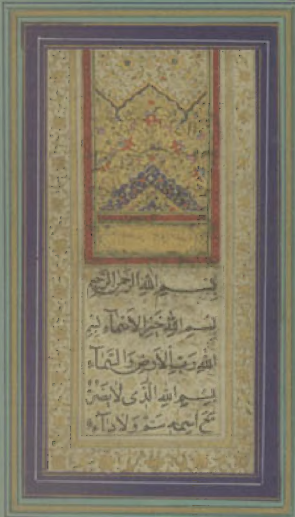 بسم الله الرحمن الرحيم
بسم الله خير الاسماء بسم
الله رب الارض والسماء
بسم الله الذی لا يضر
مع اسمه سم ولا داء